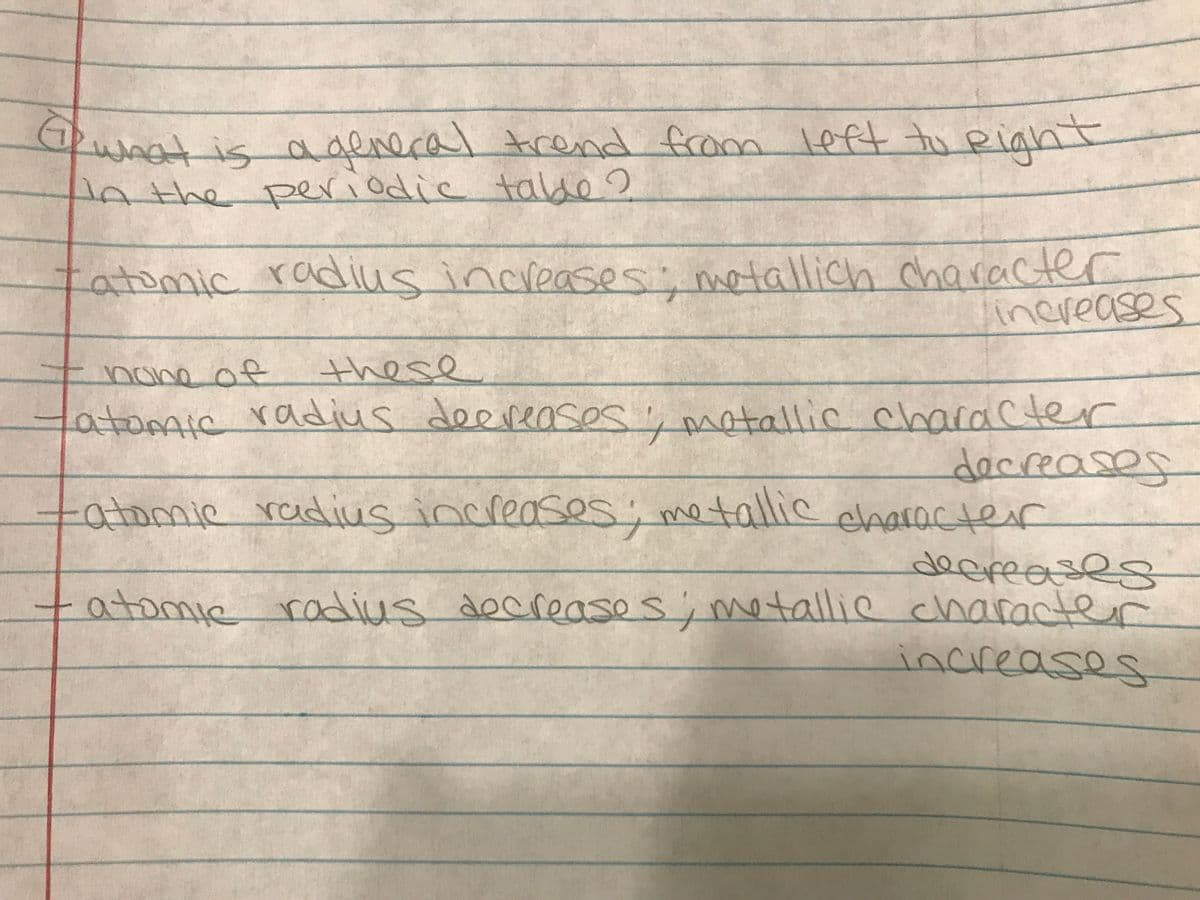 Q what is a general trend from left to right
in the periodic table?
- atomic radius increases; metallich character
increases
- none of these
- atomic radius decreases; metallic character
decreases
- atomic radius increases; metallic character
decreases
- atomic radius decreases; metallic character
increases